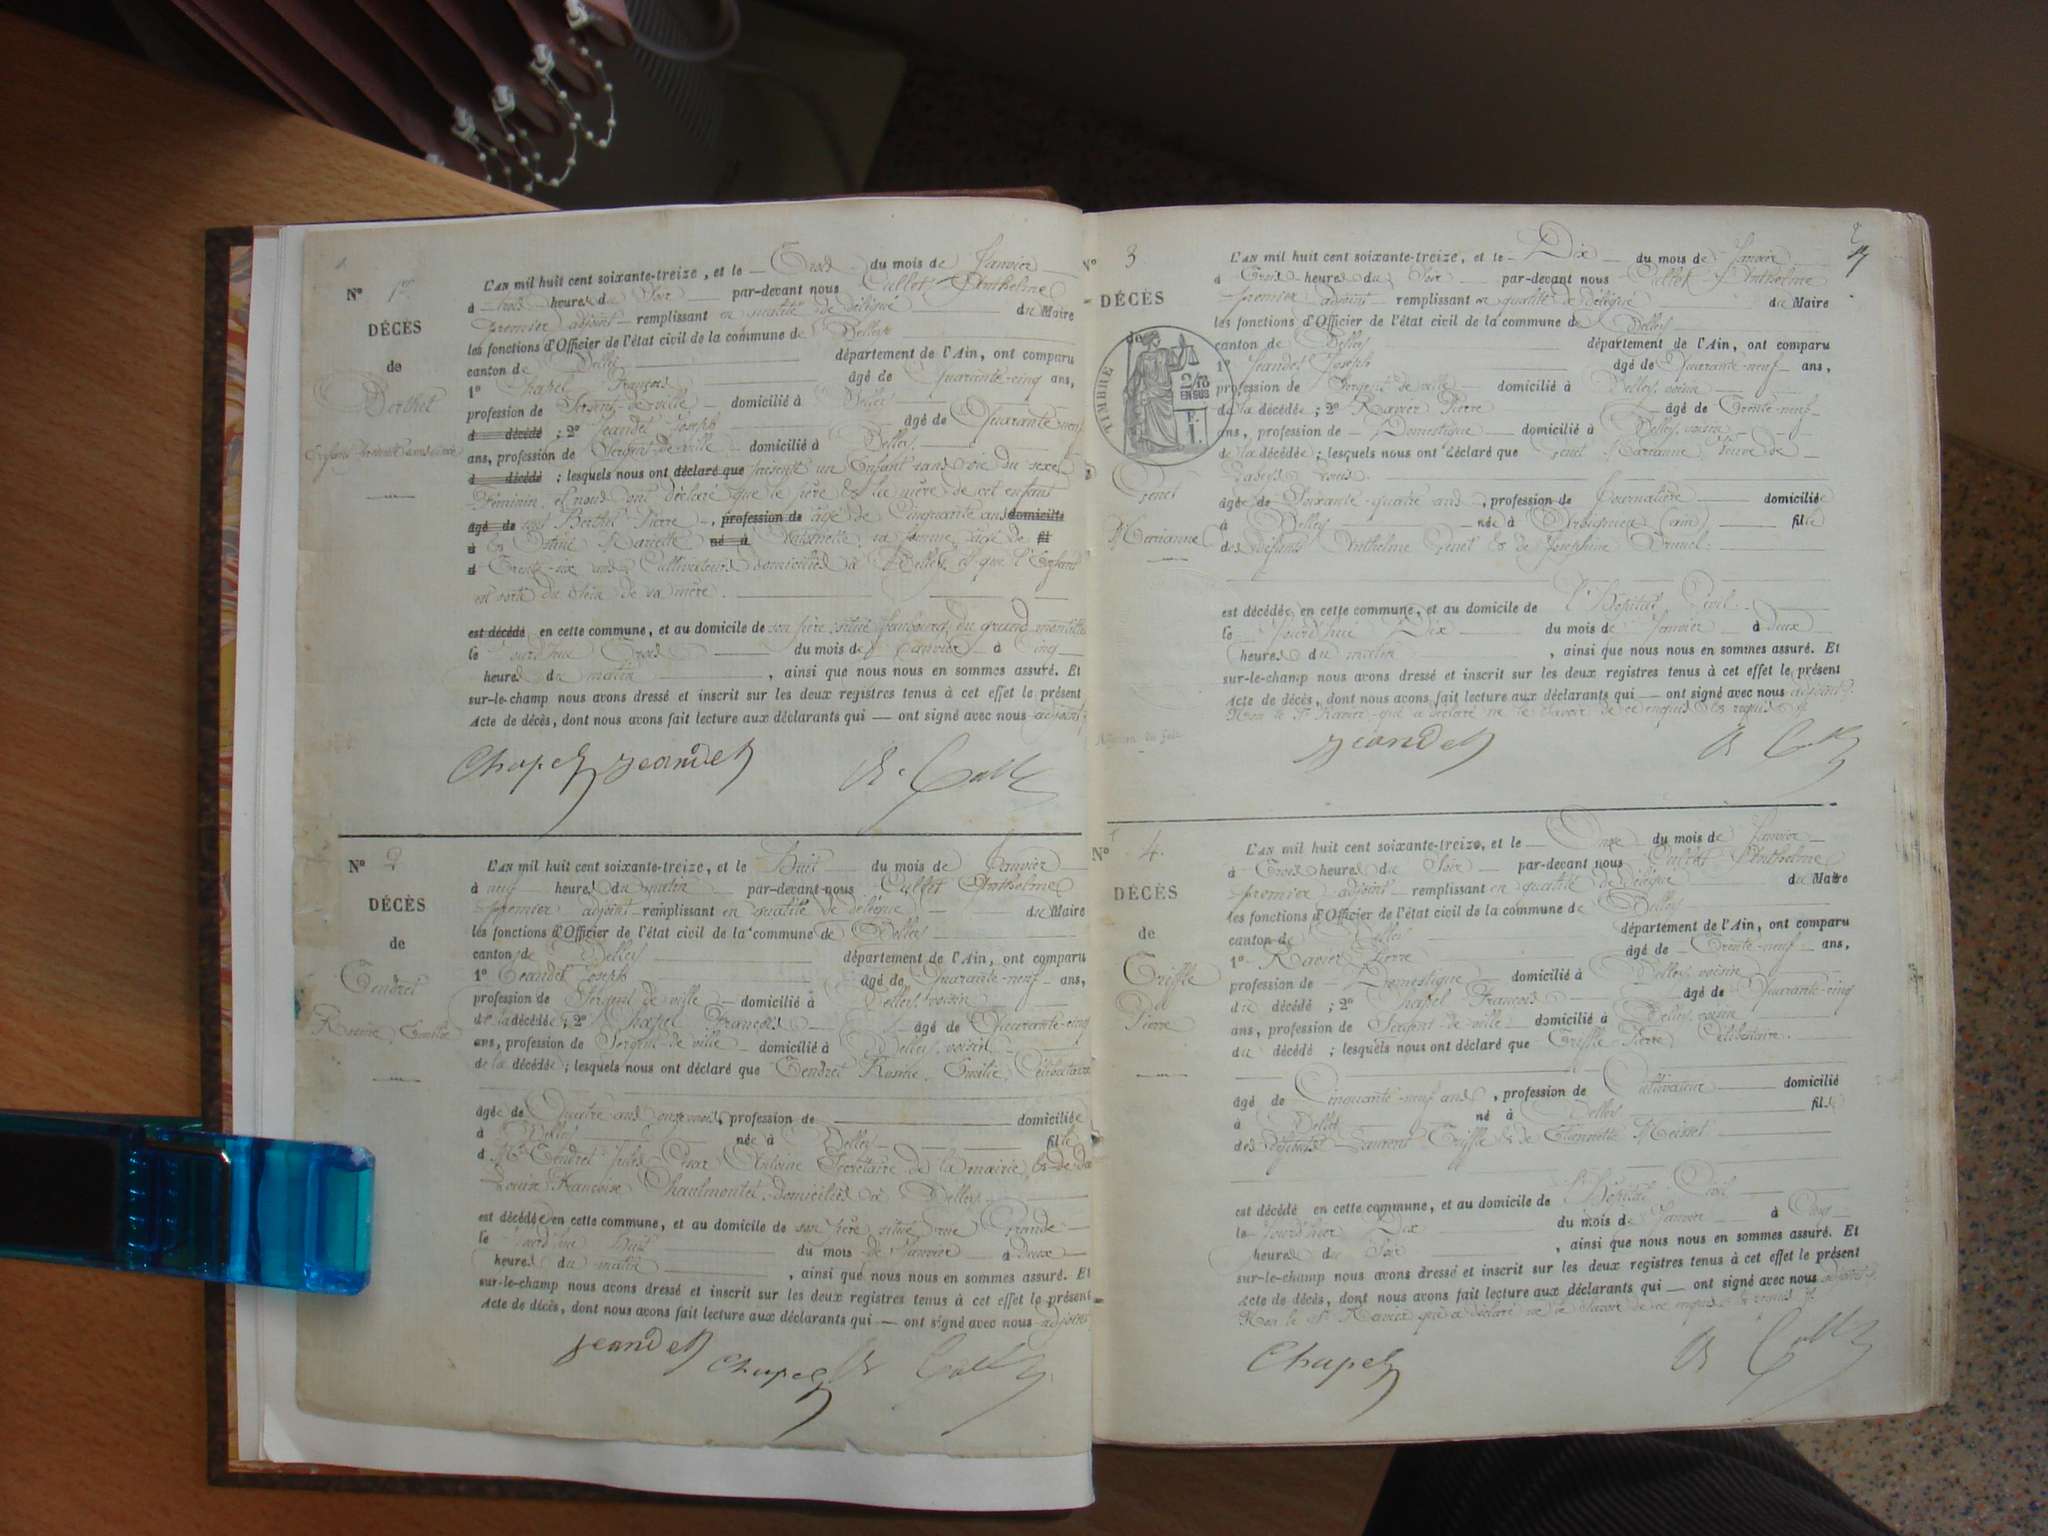 N° 1er
DÉCÈS
de
Berthet
Enfant présenté sans vie
L'AN mil huit cent soixante-treize, et le Trois du mois de Janvier
à trois heures du Soir par-devant nous Cullet Anthelme
premier adjoint remplissant en qualité de délégué du Maire
les fonctions d'Officier de l'état civil de la commune de Belley
canton de Belley département de l'Ain, ont comparu
1° Chapel François âgé de Quarante-cinq ans,
profession de Sergent-de-ville domicilié à Belley
d décédé ; 2° Jeandet Joseph âgé de Quarante neuf
ans, profession de Sergent de ville domicilié à Belley
d décédé ; lesquels nous ont déclaré que présenté un Enfant sans vie du sexe
Féminin, et nous ont déclaré que le père & la mère de cet enfant
âgé de sont Berthet Pierre, profession de âgé de Cinquante ans domicilié
à & Marcelle né à sa femme âgée de fil
d Trente-six ans Cultivateurs domiciliés à Belley, et que l'Enfant
est sorti du sein de sa mère.
est décédé en cette commune, et au domicile de son père, situé faubourg du grand
le Jourd'hui Trois du mois de Janvier à Cinq
heures du matin, ainsi que nous nous en sommes assuré. Et
sur-le-champ nous avons dressé et inscrit sur les deux registres tenus à cet effet le présent
Acte de décès, dont nous avons fait lecture aux déclarants qui — ont signé avec nous adjoint
Chapel Jeandet
N° 2
DÉCÈS
de
Tendret
L'AN mil huit cent soixante-treize, et le Huit du mois de Janvier
à neuf heures du matin par-devant nous Cullet Anthelme
premier adjoint remplissant en qualité de délégué du Maire
les fonctions d'Officier de l'état civil de la commune de Belley
canton de Belley département de l'Ain, ont comparu
1° Jeandet Joseph âgé de Quarante-neuf ans,
profession de Sergent de ville domicilié à Belley, voisin
de la décédée ; 2° Chapel François âgé de Quarante-cinq
ans, profession de Sergent-de-ville domicilié à Belley, voisin
de la décédée ; lesquels nous ont déclaré que Tendret Emilie, Célibataire
âgée de Quatre ans onze mois, profession de domiciliée
à Belley née à Belley fille
d Mr Tendret Jules César Antoine Secrétaire de la mairie, & de
Louise Françoise domiciliés à Belley
est décédée en cette commune, et au domicile de son père, situé rue Grande
le Jourd'hui huit du mois de Janvier à deux
heures du matin, ainsi que nous nous en sommes assuré. Et
sur-le-champ nous avons dressé et inscrit sur les deux registres tenus à cet effet le présent
Acte de décès, dont nous avons fait lecture aux déclarants qui — ont signé avec nous adjoint
Jeandet Chapel
N° 3
DÉCÈS
de
TIMBRE
2/10
EN SUS
Genet
Marianne
L'AN mil huit cent soixante-treize, et le Dix du mois de Janvier
à Trois heures du Soir par-devant nous Cullet Anthelme
premier adjoint remplissant en qualité de délégué du Maire
les fonctions d'Officier de l'état civil de la commune de Belley
canton de Belley département de l'Ain, ont comparu
1° Jeandet Joseph âgé de Quarante-neuf ans,
profession de Sergent de ville domicilié à Belley, voisin
de la décédée ; 2° Ravier Pierre âgé de Trente-neuf
ans, profession de Domestique domicilié à Belley, voisin
de la décédée ; lesquels nous ont déclaré que Genet Marianne, Veuve de
Louis
âgée de Soixante-quatre ans, profession de Journalière domiciliée
à Belley née à (Ain) fille
des défunts Anthelme Genet & de Josephine
est décédée en cette commune, et au domicile de l'Hôpital Civil
le Jourd'hui Dix du mois de Janvier à deux
heures du matin, ainsi que nous nous en sommes assuré. Et
sur-le-champ nous avons dressé et inscrit sur les deux registres tenus à cet effet le présent
Acte de décès, dont nous avons fait lecture aux déclarants qui — ont signé avec nous adjoint
Non le Sr Ravier qui a déclaré ne le savoir de ce enquis & requis
Jeandet
N° 4
DÉCÈS
de
Triffle
Pierre
L'AN mil huit cent soixante-treize, et le Onze du mois de Janvier
à Trois heures du Soir par-devant nous Cullet Anthelme
premier adjoint remplissant en qualité de délégué du Maire
les fonctions d'Officier de l'état civil de la commune de Belley
canton de Belley département de l'Ain, ont comparu
1° Ravier Pierre âgé de Trente-neuf ans,
profession de Domestique domicilié à Belley, voisin
du décédé ; 2° Chapel François âgé de Quarante-cinq
ans, profession de Sergent de ville domicilié à Belley, voisin
du décédé ; lesquels nous ont déclaré que Triffle Pierre Célibataire
âgé de Cinquante-neuf ans, profession de Cultivateur domicilié
à Belley né à Belley fils
des défunts Laurent Triffle & de Etiennette
est décédé en cette commune, et au domicile de l'Hôpital Civil
le Jourd'hier Dix du mois de Janvier à Onze
heures du Soir, ainsi que nous nous en sommes assuré. Et
sur-le-champ nous avons dressé et inscrit sur les deux registres tenus à cet effet le présent
Acte de décès, dont nous avons fait lecture aux déclarants qui — ont signé avec nous adjoint
Non le Sr Ravier qui a déclaré ne le savoir de ce enquis & requis
Chapel